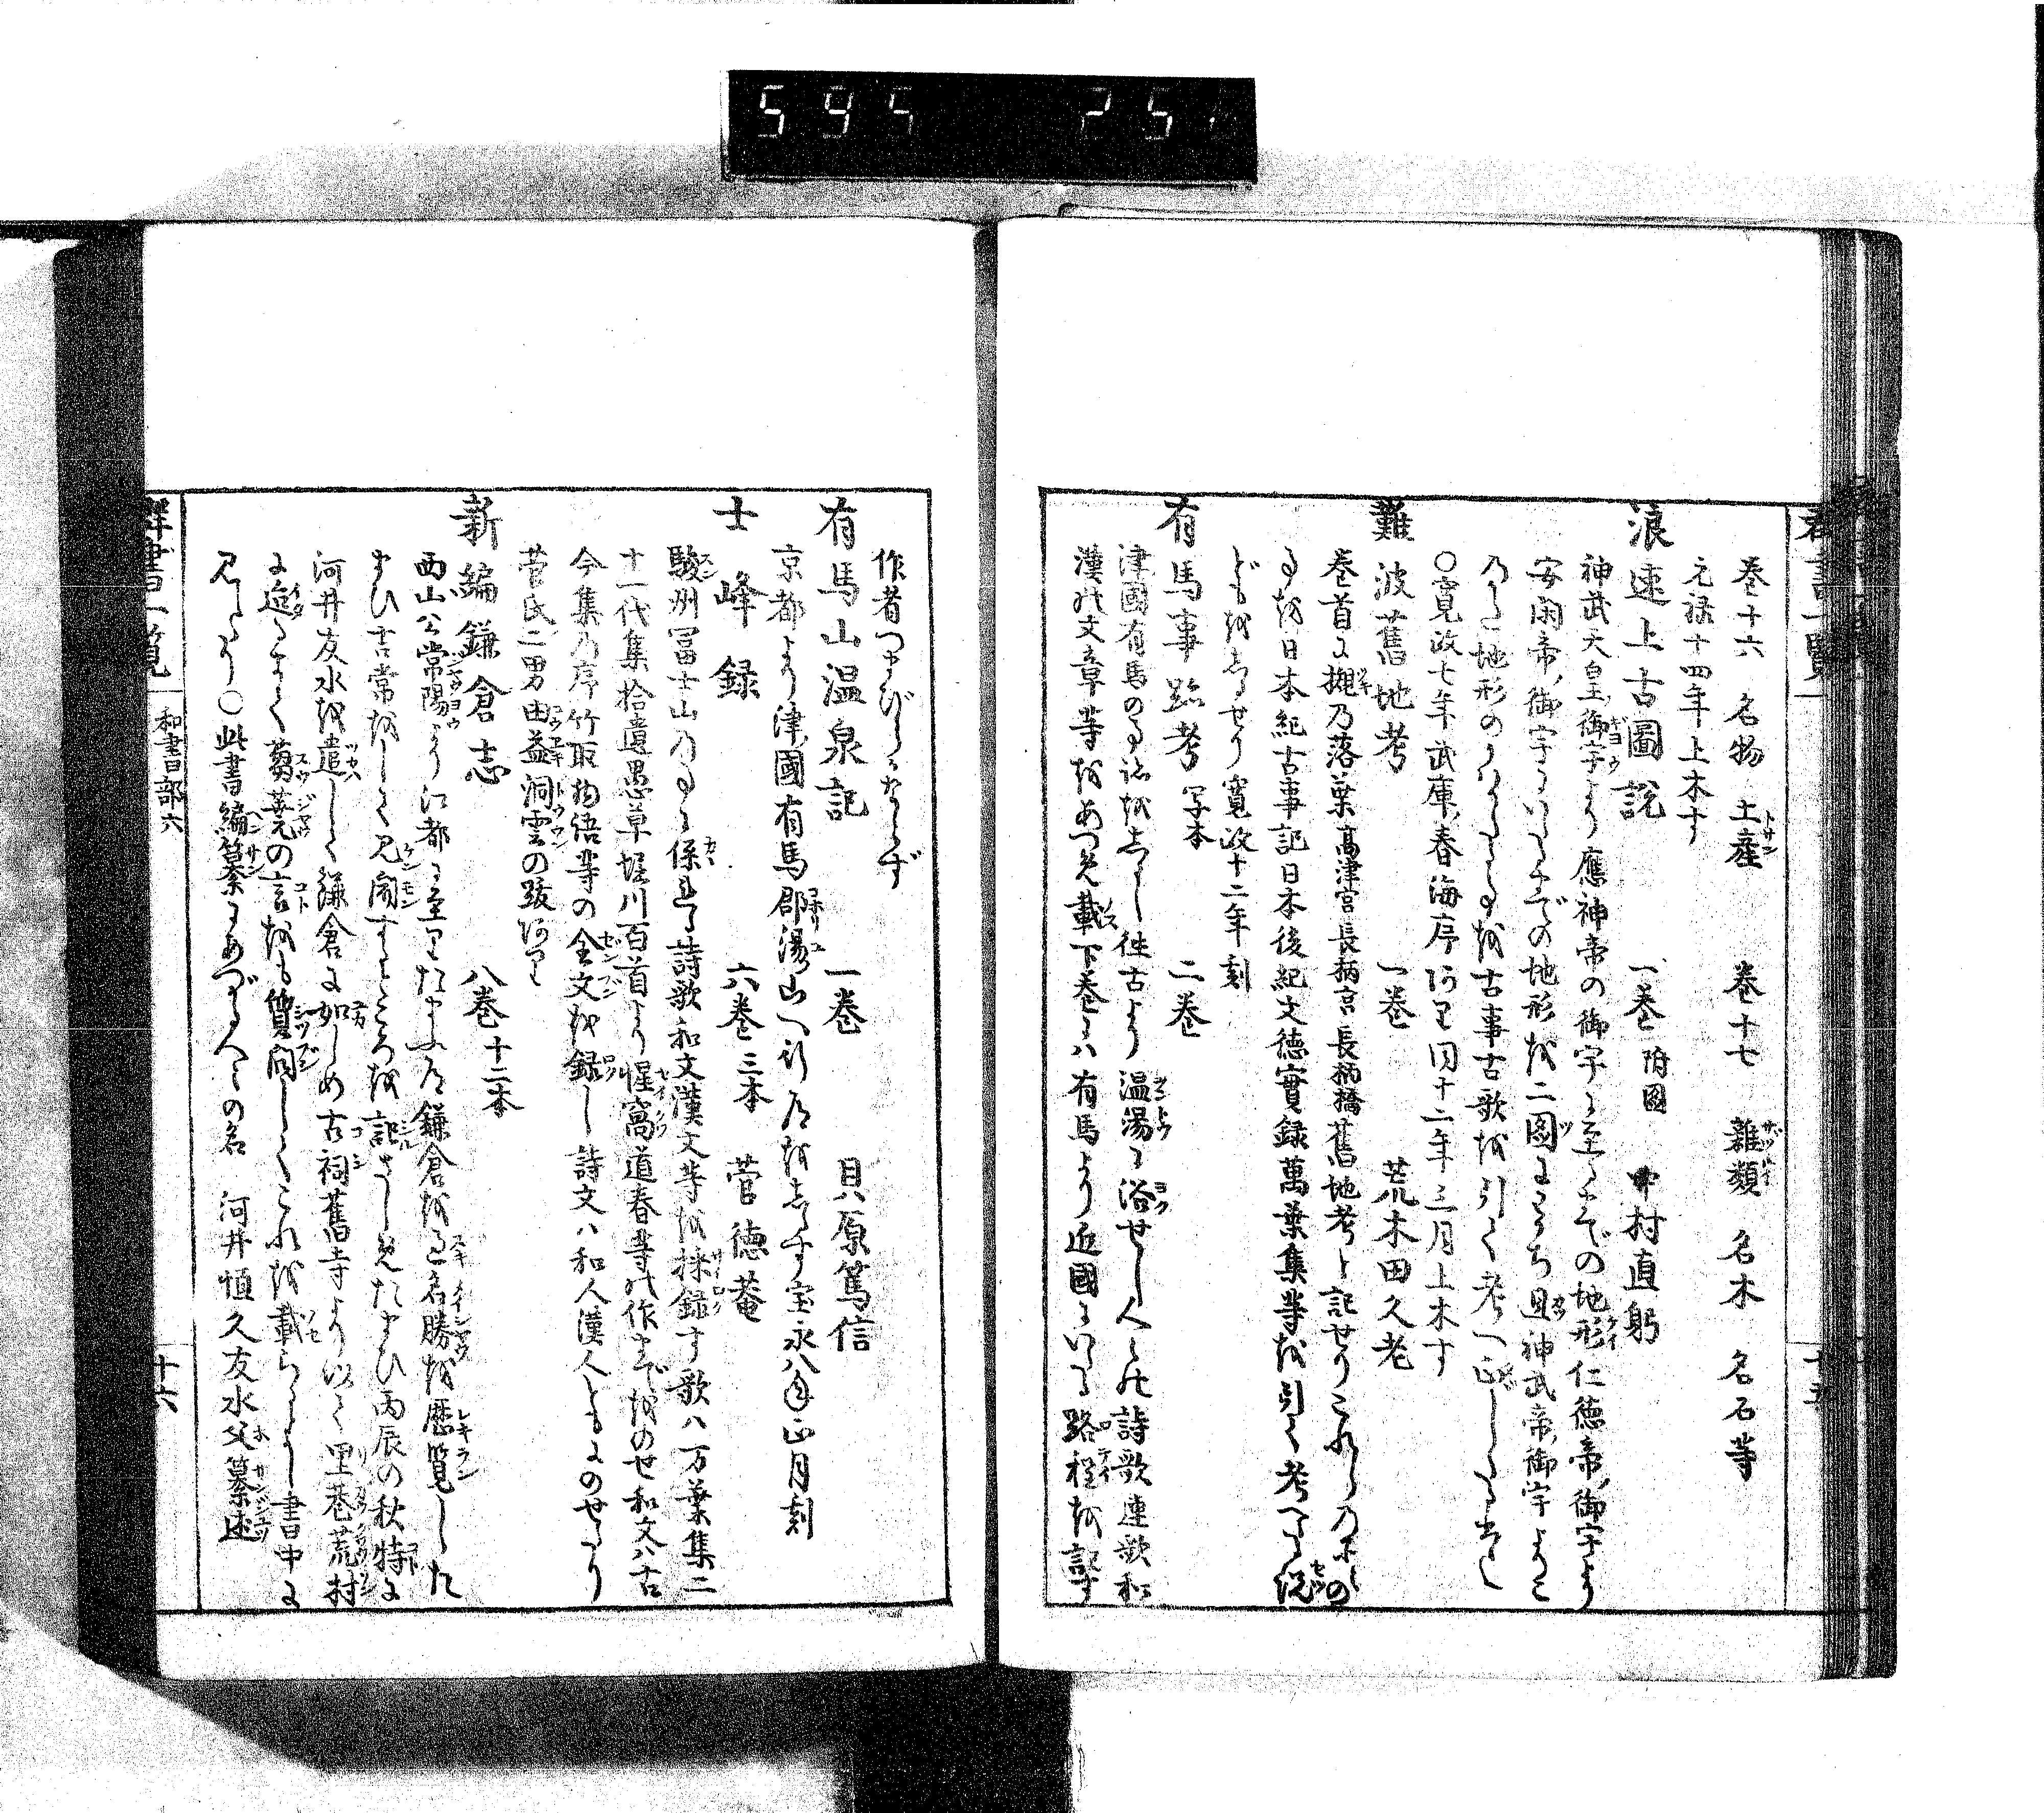 595 251
群書一覧
巻十六 名物 土産 巻十七 雑類 名木 名石等
元禄十四年上木す
浪速上古圖説 一巻 附図 中村直躬
神武天皇御宇より應神帝の御宇に至るまでの地形仁徳帝御宇より
安閑帝御宇にいたるまでの地形を二図にわかち且神武帝御宇よりこ
のかた地形のうつりかはれる事を古事古歌を引て考へ正したる書也
〇寛政七年武庫春海序あり同十二年三月上木す
難波舊地考 一巻 荒木田久老
巻首に槻乃落葉高津宮長柄宮長柄橋舊地考と記せりこれらの所の
事を日本紀古事記日本後紀文徳實録萬葉集等を引て考へたる説
どもをしるせり寛政十二年刻
有馬事跡考 写本 二巻
津國有馬の事跡をしるし往古より温湯に浴せし人々の詩歌連歌和
漢の文章等をあつめ載下巻には有馬より近國にいたる路程を記す
十五
作者つまびらかならず
有馬山温泉記 一巻 貝原篤信
京都より津國有馬郡湯山へ行道をしるす宝永八年正月刻
士峰録 六巻三本 菅徳菴
駿州冨士山の事に係れる詩歌和文漢文等を採録す歌ハ万葉集二
十一代集拾遺愚草堀川百首より惺窩道春等の作までをのせ和文ハ古
今集の序竹取物語等の全文を録し詩文ハ和人漢人ともにのせたり
菅氏二男由益洞雲の跋あり
新編鎌倉志 八巻十二本
西山公常陽より江都に至りたまふ道鎌倉を過名勝を歴覧したた
まひ吉常をして見聞するところを記さしめたまひ丙辰の秋特に
河井友水を遣して鎌倉に如しめ古祠舊寺より以て里巷荒村
に迄るまて蒭蕘の言をも質問してこれを載られしよし書中に
見えたり〇此書編纂にあづかる人々の名 河井恒久友水父纂述
群書一覧
和書部六
十六